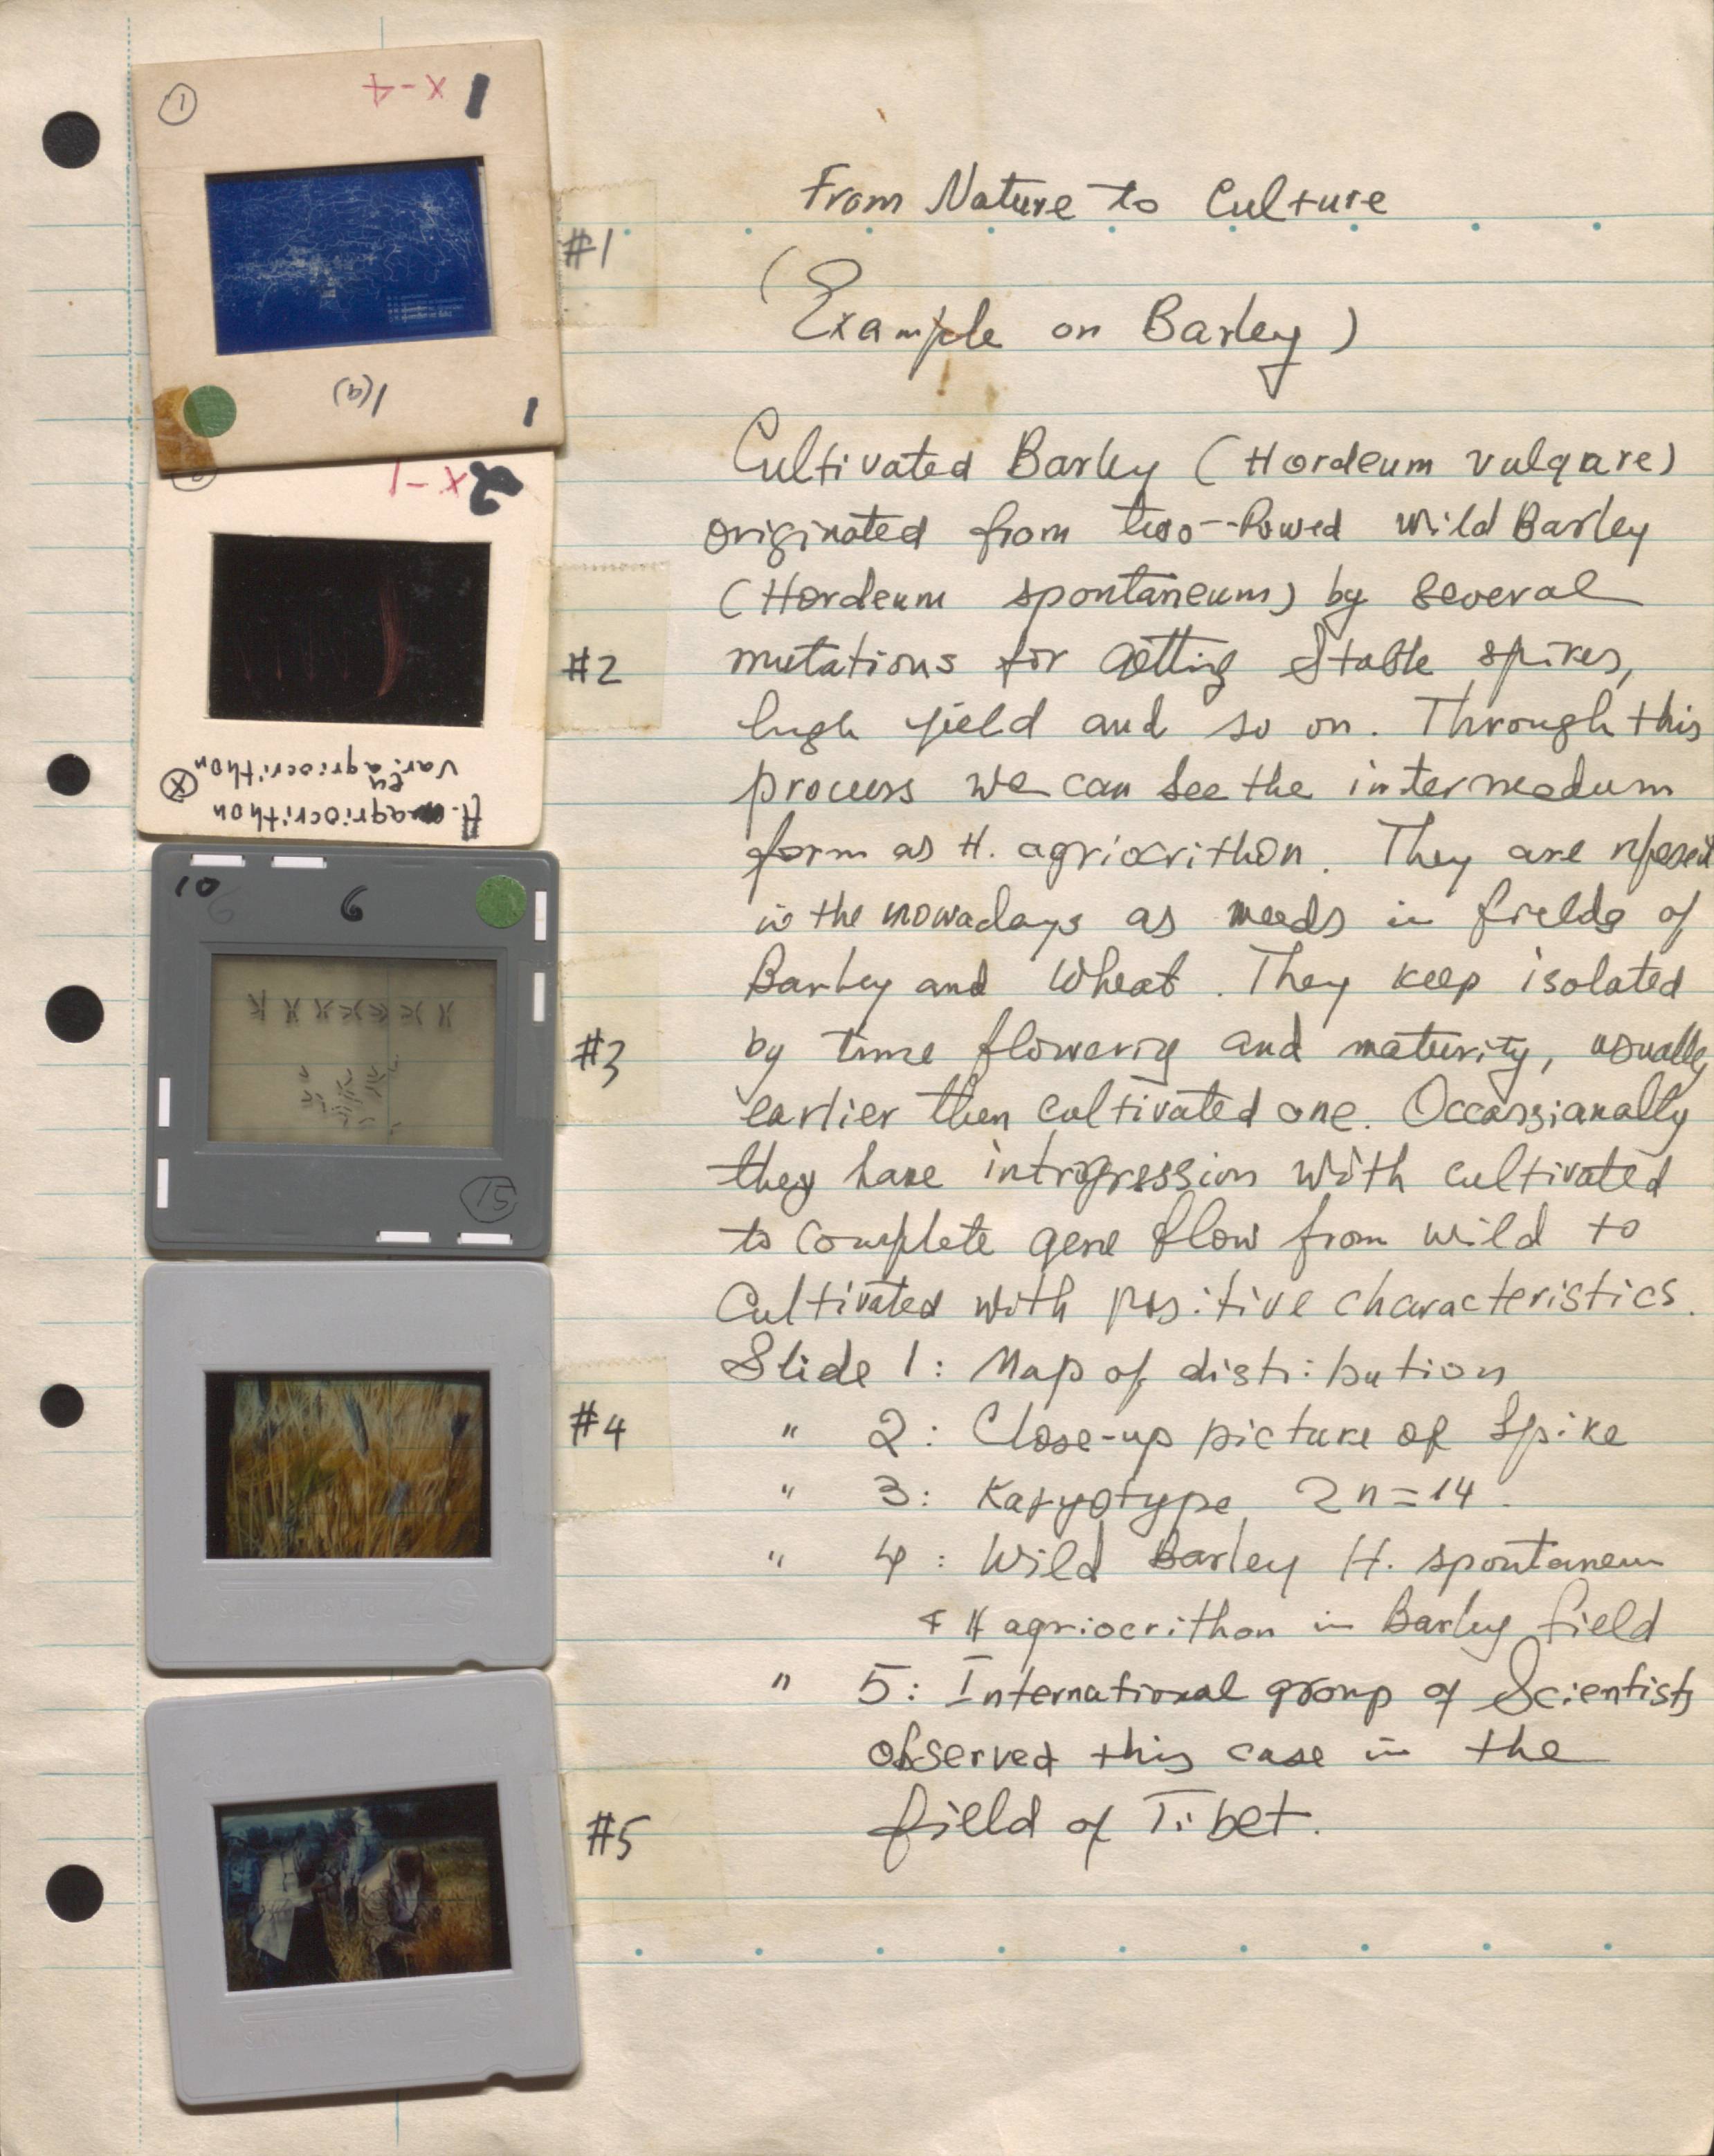 ① x-4 1
1(a)
1
#1
From Nature to Culture
(Example on Barley)
Cultivated Barley (Hordeum vulgare)
originated from two-Rowed wild Barley
(Hordeum spontaneum) by several
mutations for getting stable spikes,
high yield and so on. Through this
process we can see the intermedum
form as H. agriocrithon. They are
in the nowadays as weeds in fields of
Barley and Wheat. They keep isolated
by time flowering and maturity, usually
earlier then cultivated one. Occassianally
they have introgression with cultivated
to complete gene flow from wild to
Cultivated with positive characteristics.
Slide 1: Map of distribution
" 2: Close-up picture of Spike
" 3: Karyotype 2n=14.
" 4: Wild Barley H. spontaneum
+ H agriocrithon in Barley field
" 5: International group of Scientists
observed this case in the
field of Tibet.
2 x-1
H. agriocrithon
eu
var: agriocrithon
X
#2
10 6
15
#3
#4
#5